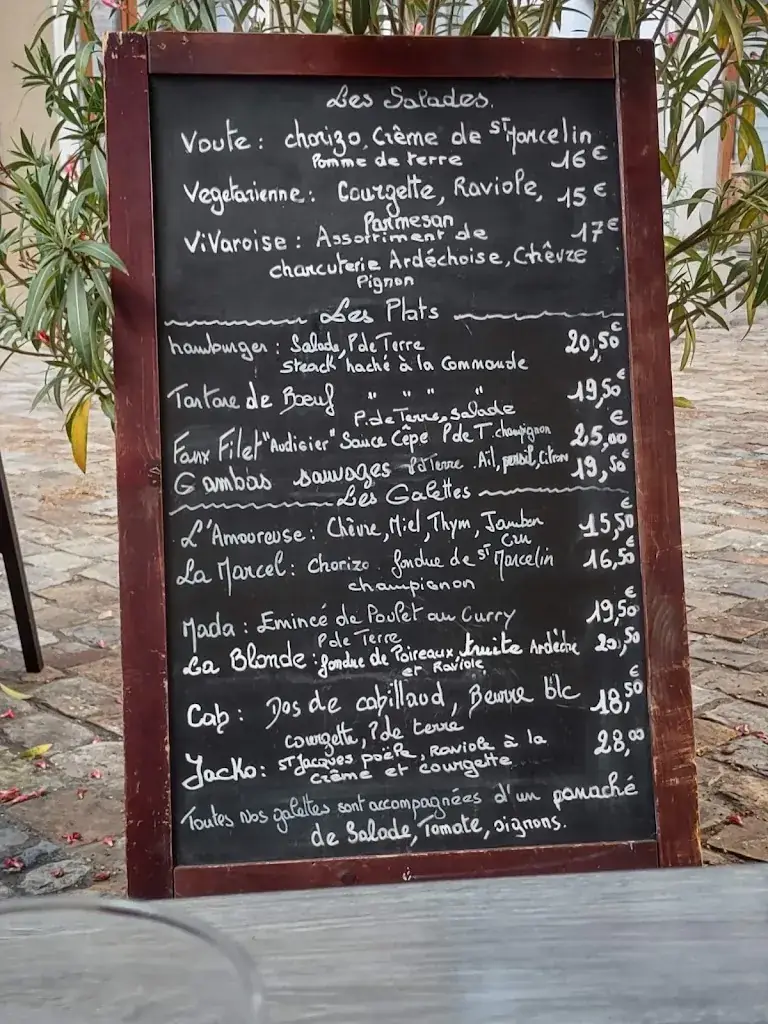 Les Salades.
Voute : chorizo, Crème de St Marcelin
Pomme de terre 16€
Vegetarienne : Courgette, Raviole, 15€
Parmesan
ViVaroise : Assortiment de 17€
charcuterie Ardéchoise, Chêvre
Pignon
Les Plats
hamburger : Salade, P de Terre 20,50€
steack haché à la Commande
Tartare de Bœuf " " " " 19,50€
P. de Terre, salade
Faux Filet "Audisier" Sauce Cêpe P de T. champignon 25,00€
Gambas sauvages P d Terre . Ail, persil, Citron 19,50€
Les Galettes
L'Amoureuse : Chèvre, Miel, Thym, Jambon 15,50€
Cru
La Marcel : Chorizo . fondue de St Marcelin 16,50€
champignon
Mada : Emincé de Poulet au Curry 19,50€
P de Terre
La Blonde : fondue de Poireaux, truite Ardèche 20,50
et Raviole
Cab : Dos de cabillaud, Beurre blc 18,50€
courgette, P de terre
Jacko : St Jacques poêlé, Raviole à la 28,00
crème et courgette
Toutes nos galettes sont accompagnées d'un panaché
de Salade, Tomate, oignons.